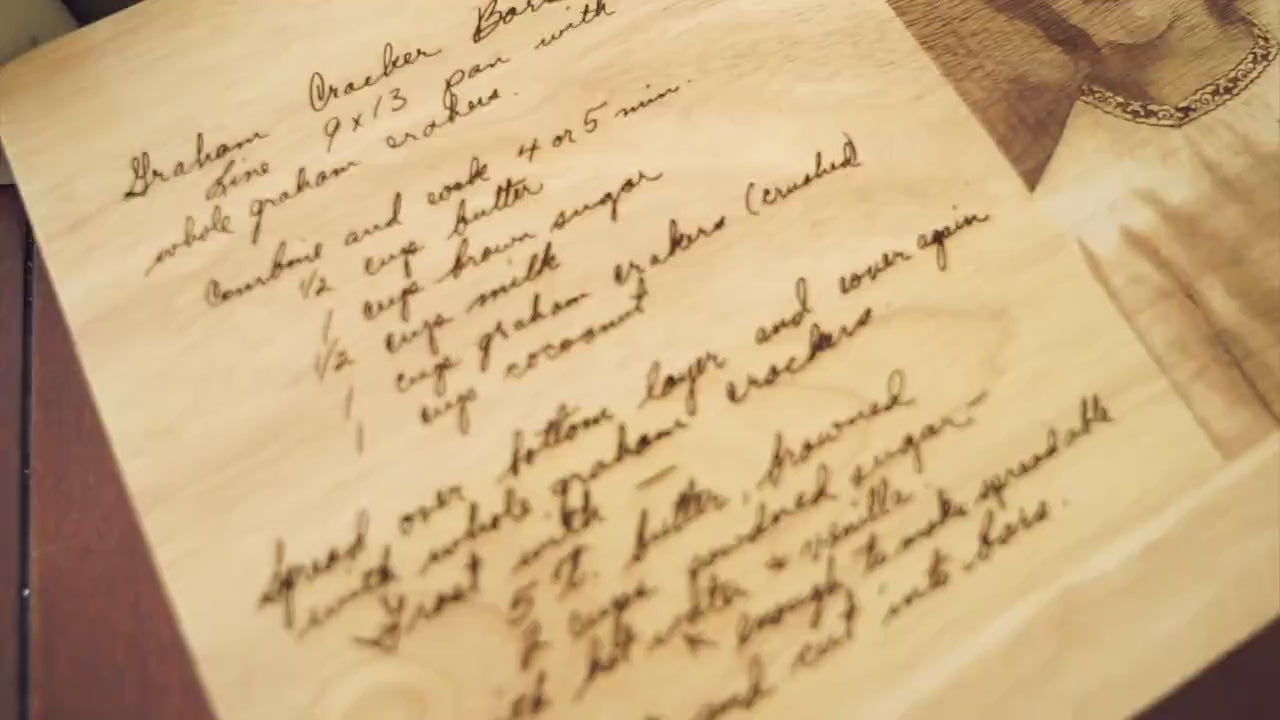 Graham Cracker Bars
Line 9x13 pan with
whole graham crakers.
Combine and cook 4 or 5 min.
1/2 cup butter
1 cup brown sugar
1/2 cup milk
1 cup graham crakers (crushed)
1 cup cocoanut
Spread over bottom layer and cover again
with whole graham crackers
Frost with —
5 T. butter, browned
2 cups powdered sugar -
hot water + vanilla
enough to make spreadable
and cut into bars.